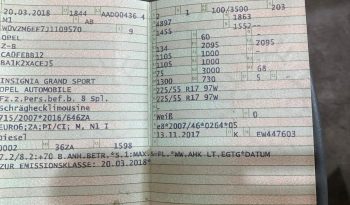 20.03.2018 1844 AAD00436 4
M1 AB
9
OPEL
Z-B
INSIGNIA GRAND SPORT
OPEL AUTOMOBILE
Fz.z.Pers.bef.b. 8 Spl.
Schräghecklimousine
715/2007*2016/646ZA
EURO6;ZA;PI/CI; M, N1 I
Diesel
0002 36ZA 1598
1 100/3500 203
4897 1863
1455
60 2095
2095
1105 1000
1105 1000
75 68 5
1300 730
225/55 R17 97W
225/55 R17 97W
weiß 0
e8*2007/46*0264*05
13.11.2017 K EW447603
7.2/8.2:+70 B.ANH.BETR.*S.1:MAX.5-PL.*WW.AHK LT.EGTG*DATUM
ZUR EMISSIONSKLASSE: 20.03.2018*